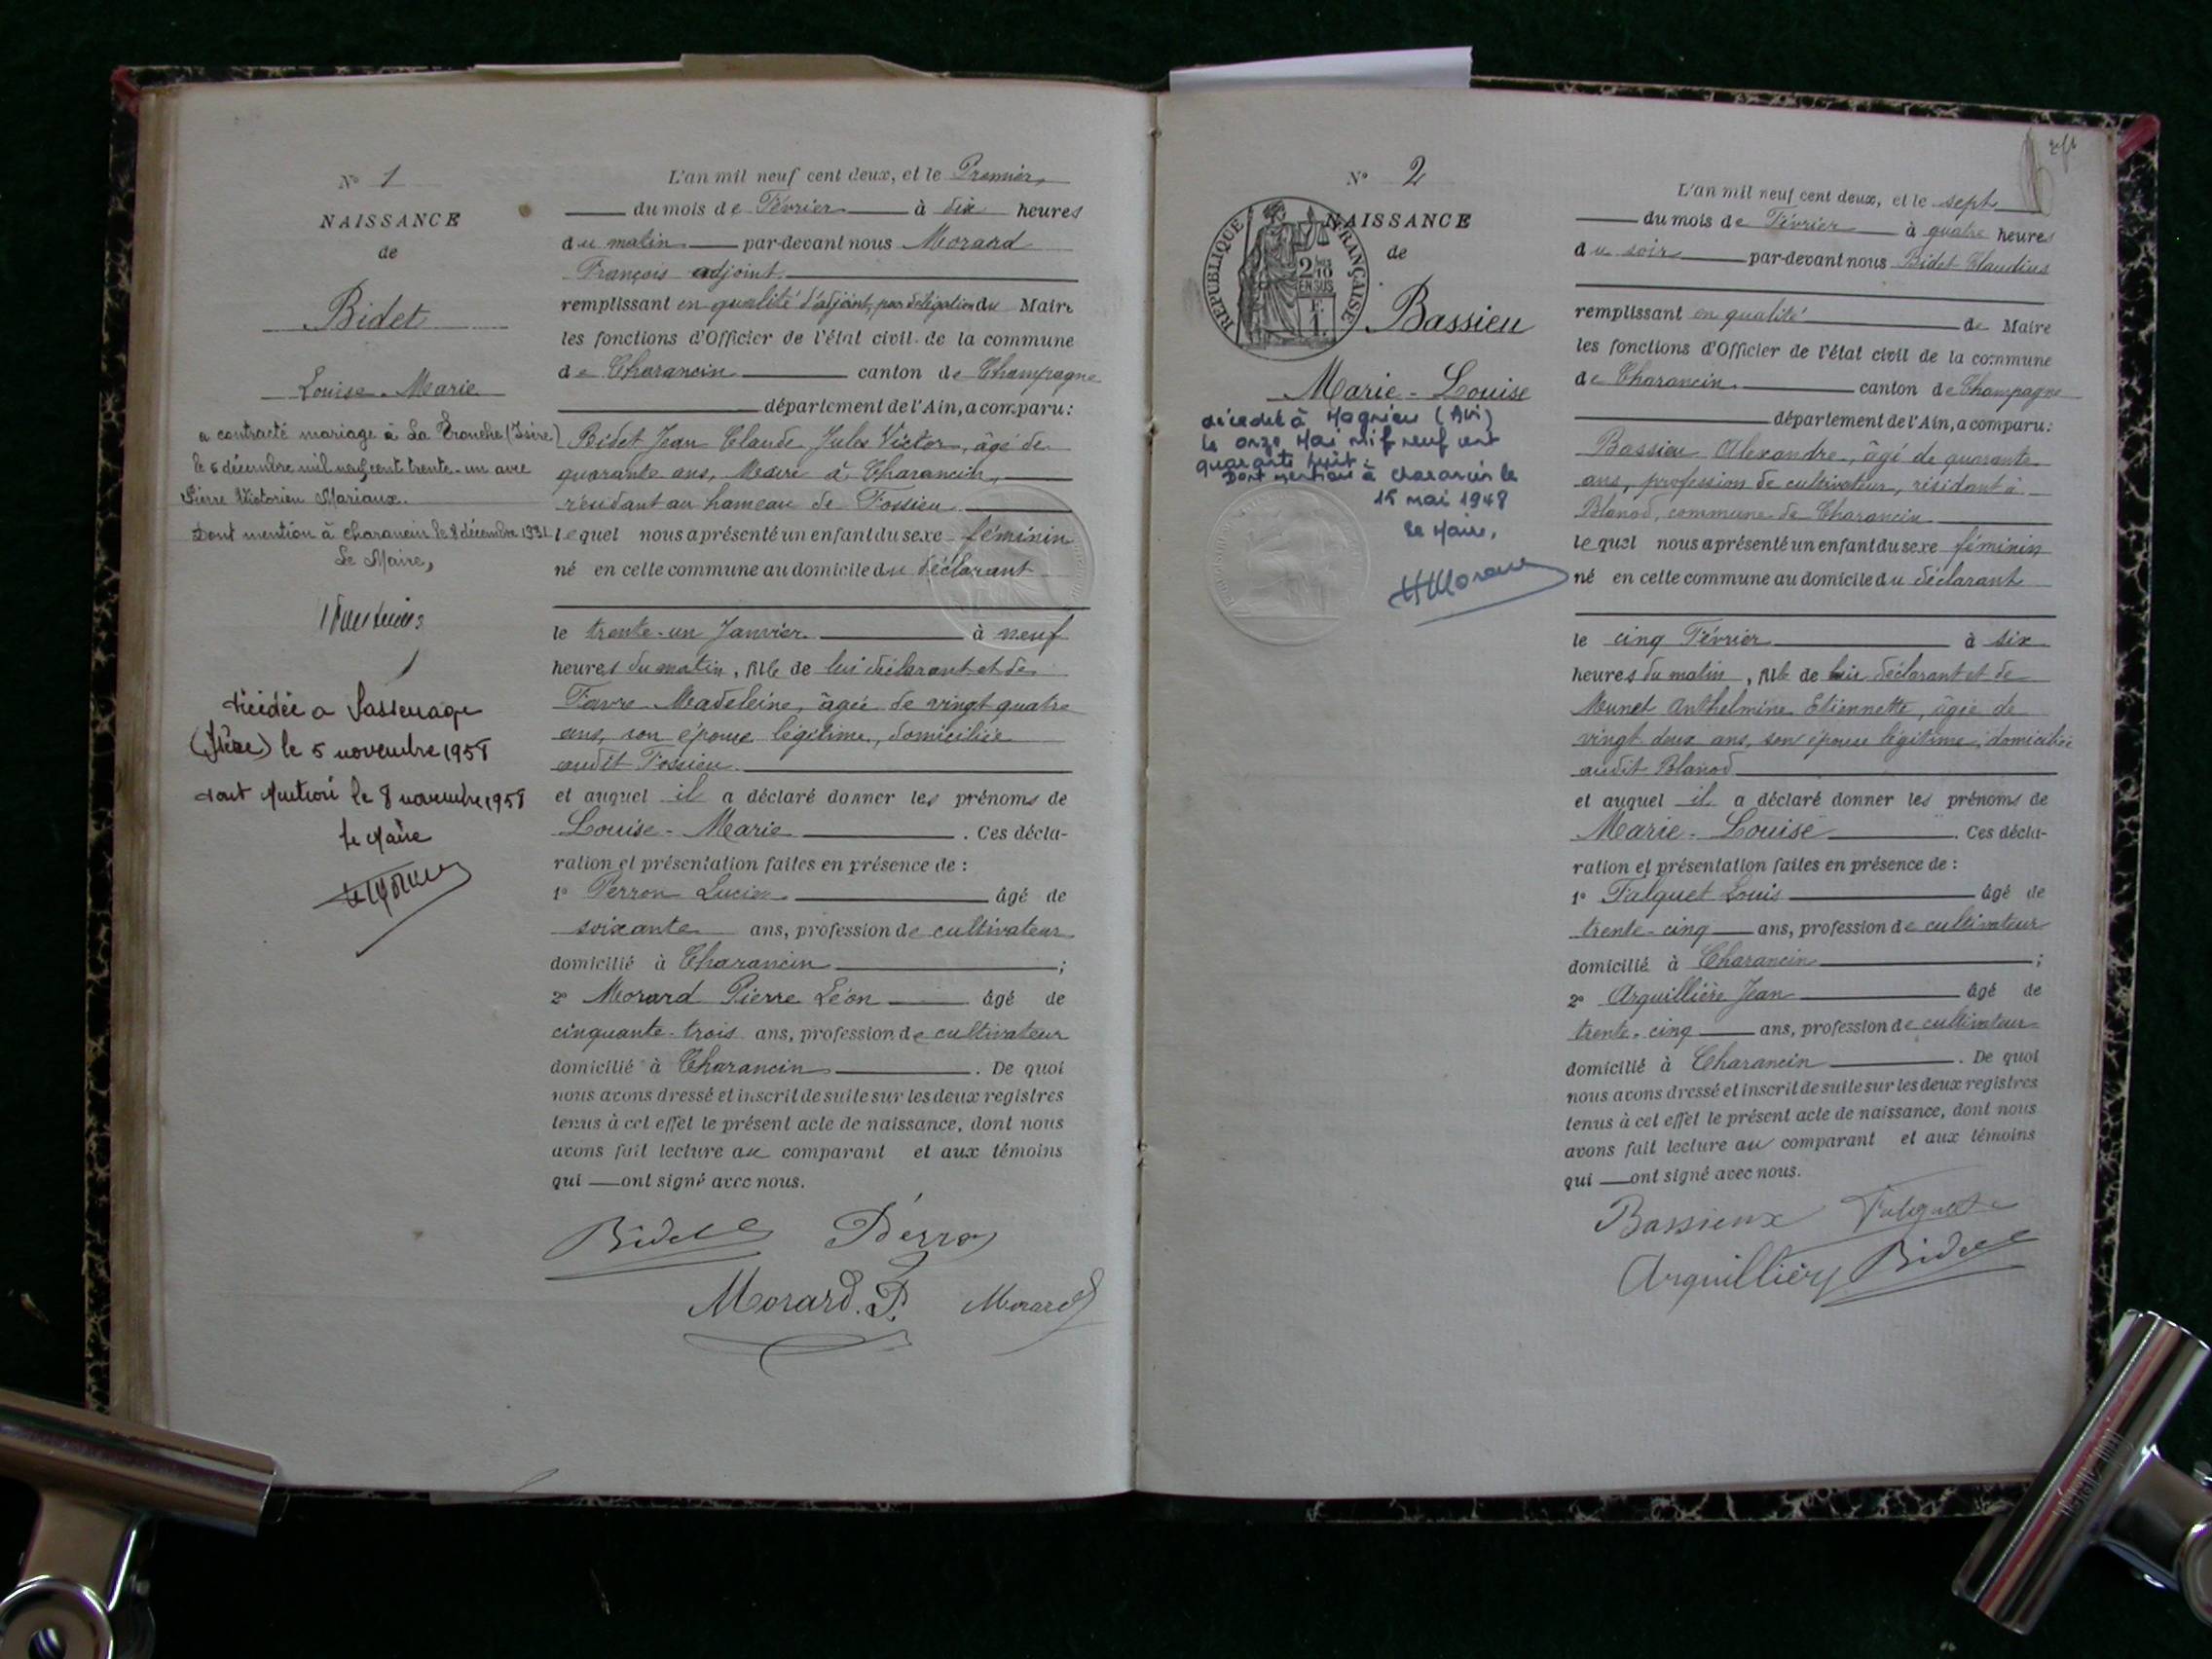 N° 1
NAISSANCE
de
Bidet
Louise-Marie
a contracté mariage à La Tronche (Isère)
le 5 décembre mil neuf cent trente-un avec
Pierre Victorien Mariaux.
Dont mention à Charancin le 8 décembre 1931
Le Maire,
décédée a Sassenage
(Isère) le 5 novembre 1958
dont mention le 8 novembre 1958
le Maire
L'an mil neuf cent deux, et le Premier
du mois de Février à dix heures
du matin par-devant nous Morard
François adjoint
remplissant en qualité d'adjoint, par délégation du Maire
les fonctions d'Officier de l'état civil de la commune
de Charancin canton de Champagne
département de l'Ain, a comparu:
Bidet Jean Claude Jules Victor, âgé de
quarante ans, Maire à Charancin,
résidant au hameau de Fossieu
lequel nous a présenté un enfant du sexe féminin
né en cette commune au domicile du déclarant
le trente-un Janvier à neuf
heures du matin, fille de lui déclarant et de
Favre Madeleine, âgée de vingt quatre
ans, son épouse légitime, domiciliée
audit Fossieu
et auquel il a déclaré donner les prénoms de
Louise-Marie. Ces décla-
ration et présentation faites en présence de:
1° Perron Lucien âgé de
soixante ans, profession de cultivateur
domicilié à Charancin;
2° Morard Pierre Léon âgé de
cinquante-trois ans, profession de cultivateur
domicilié à Charancin. De quoi
nous avons dressé et inscrit de suite sur les deux registres
tenus à cet effet le présent acte de naissance, dont nous
avons fait lecture au comparant et aux témoins
qui ont signé avec nous.
Bidet Perron
Morard. P. Morard
N° 2
NAISSANCE
de
RÉPUBLIQUE FRANÇAISE
2/10 EN SUS
Bassieu
Marie-Louise
décédée à Magnieu (Ain)
le onze Mai mil neuf cent
quarante huit.
Dont mention à Charancin le
15 mai 1948
Le Maire,
L'an mil neuf cent deux, et le sept
du mois de Février à quatre heures
du soir par-devant nous Bidet Claudius
remplissant en qualité de Maire
les fonctions d'Officier de l'état civil de la commune
de Charancin canton de Champagne
département de l'Ain, a comparu:
Bassieu Alexandre, âgé de quarante
ans, profession de cultivateur, résidant à
Blanod, commune de Charancin
lequel nous a présenté un enfant du sexe féminin
né en cette commune au domicile du déclarant
le cinq Février à six
heures du matin, fille de lui déclarant et de
Munet Anthelmine Etiennette, âgée de
vingt deux ans, son épouse légitime, domiciliée
audit Blanod
et auquel il a déclaré donner les prénoms de
Marie-Louise. Ces décla-
ration et présentation faites en présence de:
1° Falquet Louis âgé de
trente-cinq ans, profession de cultivateur
domicilié à Charancin;
2° Arquillière Jean âgé de
trente-cinq ans, profession de cultivateur
domicilié à Charancin. De quoi
nous avons dressé et inscrit de suite sur les deux registres
tenus à cet effet le présent acte de naissance, dont nous
avons fait lecture au comparant et aux témoins
qui ont signé avec nous.
Bassieux Falquet
Arquillière Bidet